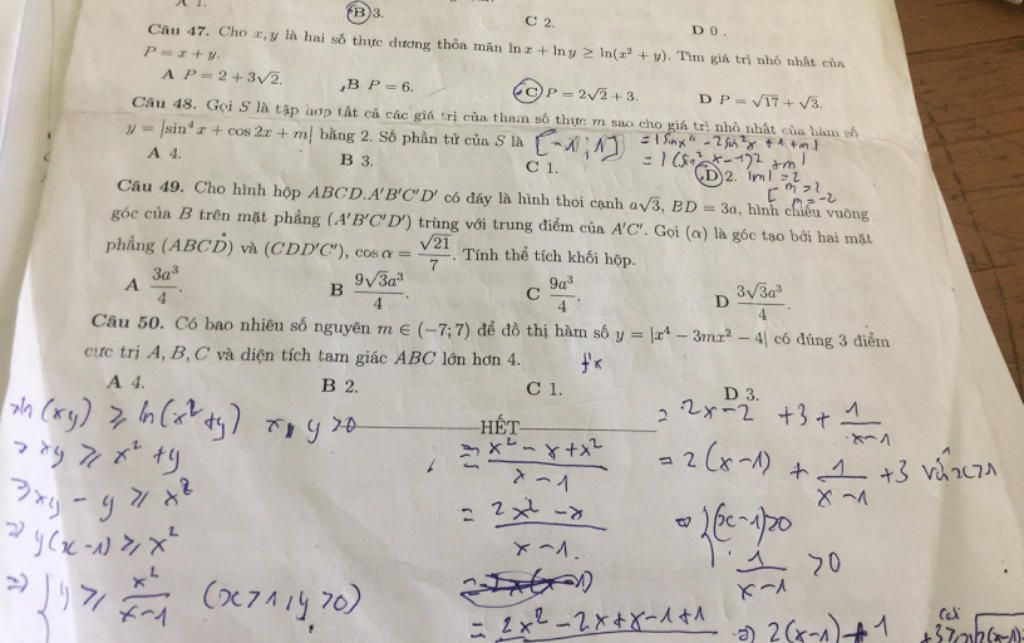 A 1. B 3. C 2. D 0.
Câu 47. Cho x, y là hai số thực dương thỏa mãn ln x + ln y ≥ ln(x² + y). Tìm giá trị nhỏ nhất của
P = x + y.
A P = 2 + 3√2. B P = 6. C P = 2√2 + 3. D P = √17 + √3.
Câu 48. Gọi S là tập hợp tất cả các giá trị của tham số thực m sao cho giá trị nhỏ nhất của hàm số
y = |sin⁴ x + cos 2x + m| bằng 2. Số phần tử của S là [-1;1] = |sinx⁴ - 2sin²x + 1 + m|
= |(sin²x - 1)² + m|
A 4. B 3. C 1. D 2. |m| = 2
[m = 2
m = -2
Câu 49. Cho hình hộp ABCD.A'B'C'D' có đáy là hình thoi cạnh a√3, BD = 3a, hình chiếu vuông
góc của B trên mặt phẳng (A'B'C'D') trùng với trung điểm của A'C'. Gọi (α) là góc tạo bởi hai mặt
phẳng (ABCD) và (CDD'C'), cos α = √21/7. Tính thể tích khối hộp.
A 3a³/4. B 9√3a³/4. C 9a³/4. D 3√3a³/4.
Câu 50. Có bao nhiêu số nguyên m ∈ (−7; 7) để đồ thị hàm số y = |x⁴ − 3mx² − 4| có đúng 3 điểm
cực trị A, B, C và diện tích tam giác ABC lớn hơn 4.
f'x
A 4. B 2. C 1. D 3.
HẾT
ln(xy) ≥ ln(x² + y) x, y > 0
⇒ xy ≥ x² + y
⇒ xy - y ≥ x²
⇒ y(x-1) ≥ x²
⇒ { y ≥ x²/(x-1) (x > 1, y > 0)
= (x² - x + x²)/(x-1)
= (2x² - x)/(x-1)
= (2x² - 2x + x - 1 + 1
= 2x - 2 + 3 + 1/(x-1)
= 2(x-1) + 1/(x-1) + 3 với x > 1
⇔ { (x-1) > 0
1/(x-1) > 0
⇒ 2(x-1) + 1